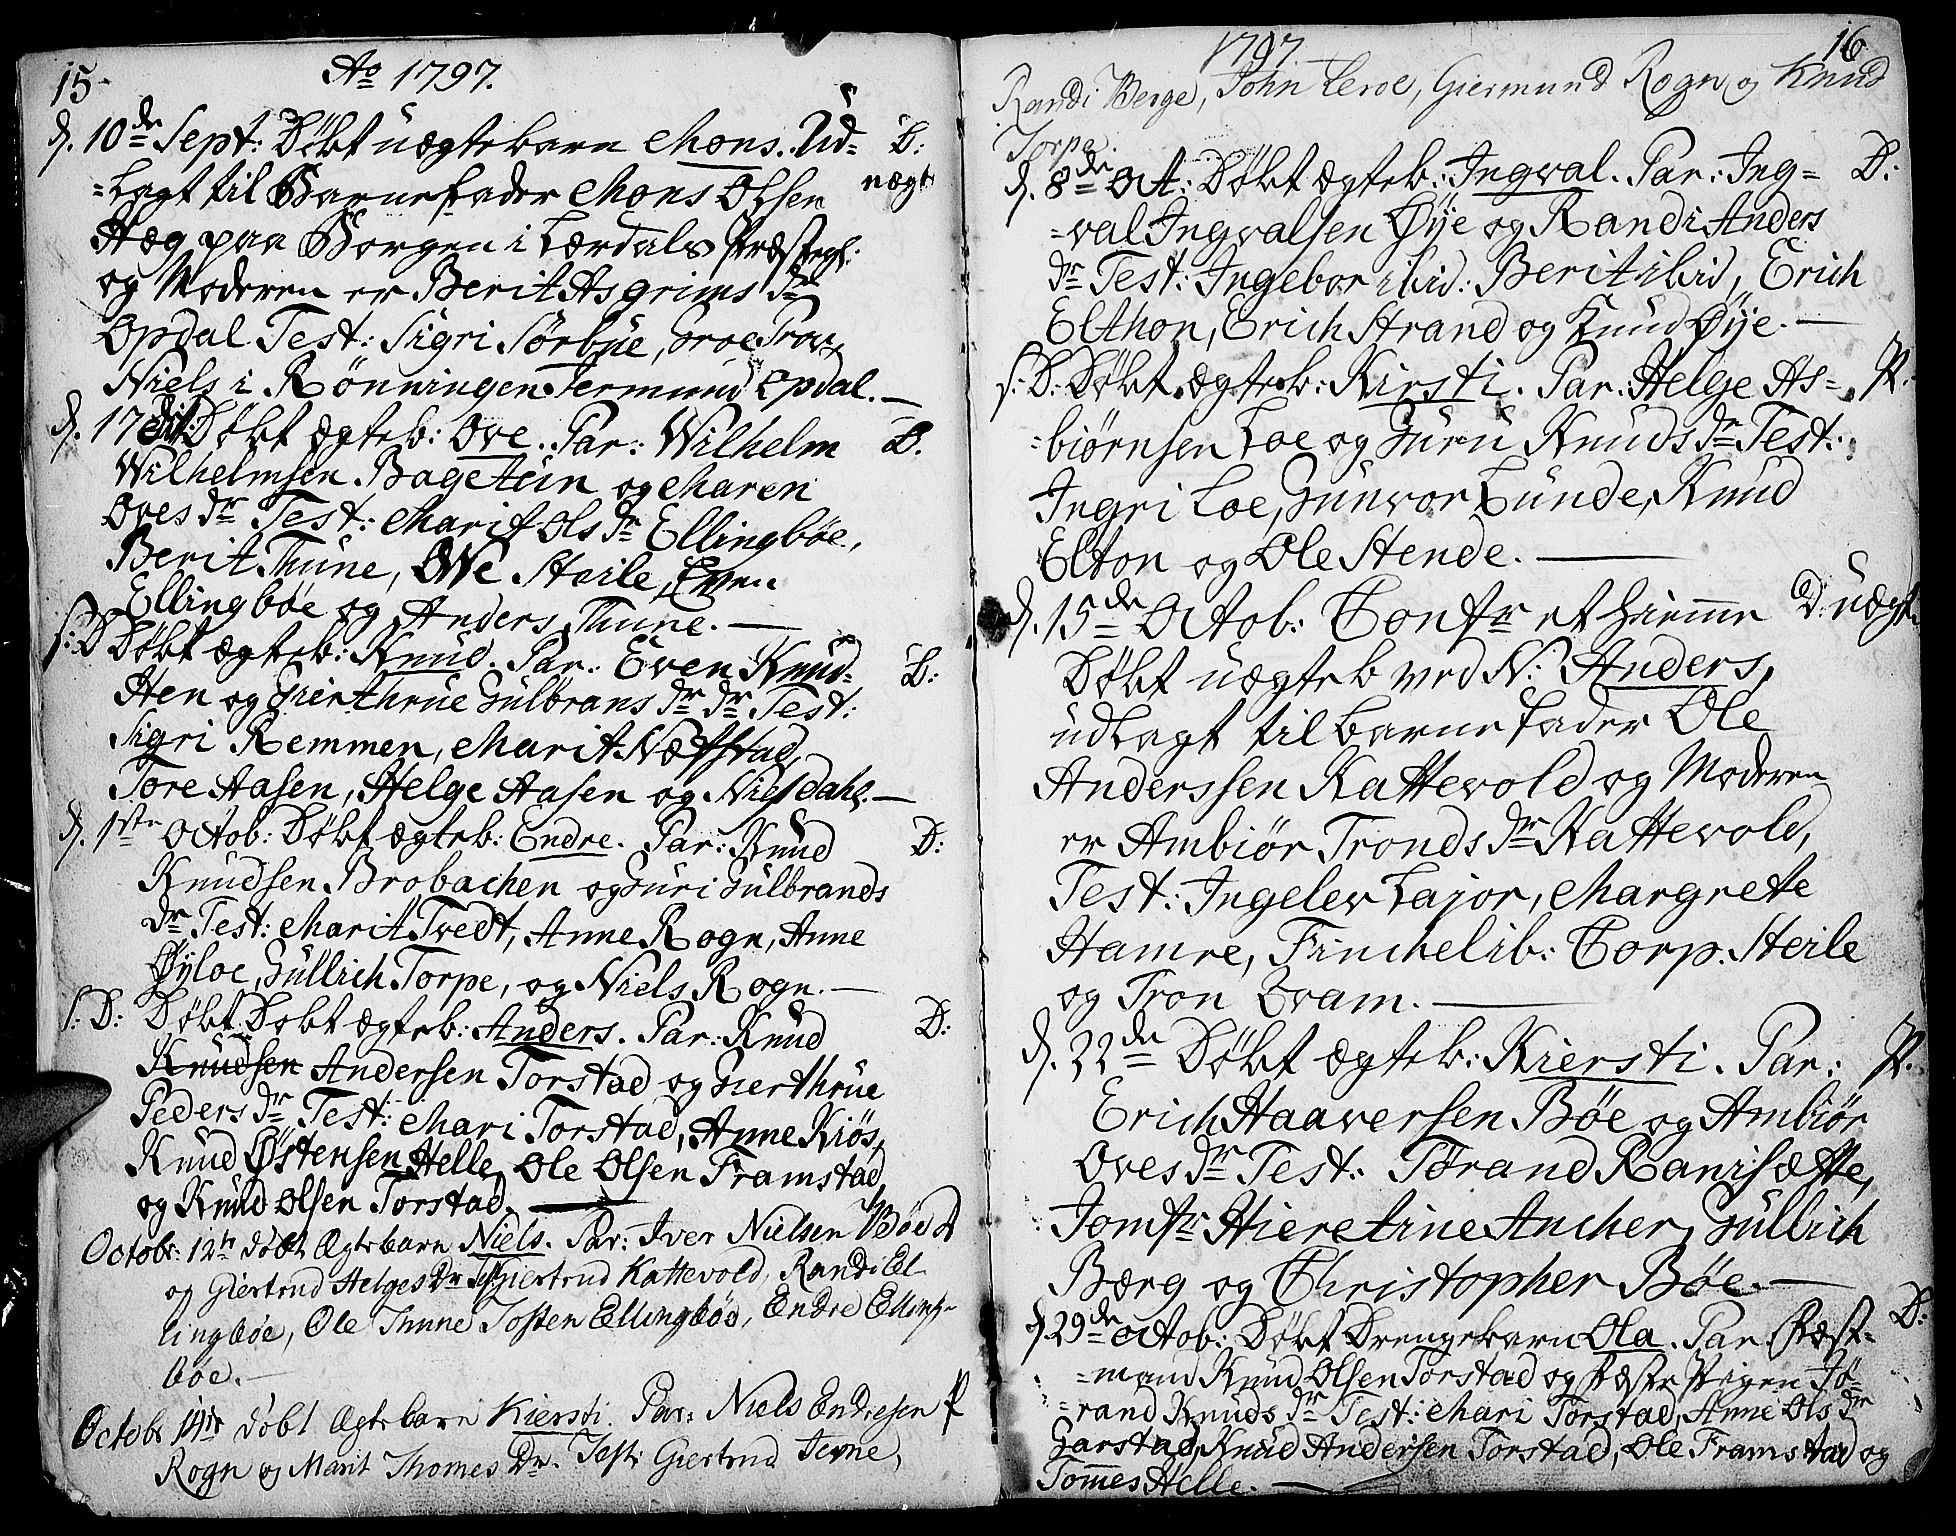 15. Ao 1797.
d. 10de Sept: Døbt uægtebarn Mons. Ud= D:
=lagt til Barnefader Mons Olsen uægt
Hæg paa Borgen i Lærdals Præstegl:
og Moderen er Berit Asgrims Dr
Opdal Test: Sigri Sørbye, Groe
Niels i Rønningen Germund Opdal.—
d. 17de Døbt ægteb: Ove. Par: Wilhelm D.
Wilhelmsen Bagstein og Maren
Oves Dr Test: Marit Ols Dr Ellingbøe,
Berit Thune, Ove Steile, Even
Ellingbøe og Anders Thune.—
s: D Døbt ægteb: Knud. Par: Even Knud- D:
sten og Gierthrue Gulbrans Dr Dr Test:
Sigri Remmen, Marit Næfstad,
Tore Aasen, Helge Aasen og Niels Dahl.—
d. 1ste Octob: Døbt ægteb: Endre. Par: Knud D:
Knudsen Brobachen og Guri Gulbrands
Dr Test: Marit Tvedt, Anne Rogn, Anne
Øyloe, Gullich Torpe, og Niels Rogn.—
s: D: Døbt Døbt ægteb: Anders. Par: Knud D:
Knudsen Andersen Torstad og Gierthrue
Peders Dr Test: Mari Torstad, Anne Kiøs,
Knud Østensen Helle, Ole Olsen Framstad
og Knud Olsen Torstad.—
Octobr: 12te døbt Ægtebarn Niels. Par: Iver Nielsen Bøe D
og Giertrud Helges Dr Test: Giertrud Kattevold, Randi El-
lingbøe, Ole Thune Tosten Ellingbøe, Endre Elling-
bøe.—
Octobr 14de døbt Ægtebarn Kiersti. Par: Niels Endresen P
Rogn og Marit Thomes Dr. Test: Giertrud Jevne,
1797 16
Randi Berge, John Leroe, Giermund Rogn og Knud
Torpe.
d. 8de Oct: Døbt ægteb: Ingval. Par: Ing= D:
=val Ingvalsen Øye og Randi Anders
Dr Test: Ingebor ibid: Berit ibid, Erich
Elthon, Erich Strand og Knud Øye.—
s: D: Døbt ægteb: Kirsti. Par: Helge As= P.
=biørnsen Loe og Guru Knuds Dr Test:
Ingri Loe, Gunvor Lunde, Knud
Elton og Ole Stende.—
d. 15de Octob: Confr et hiemme D: uægt
Døbt uægteb ved N: Anders,
udlagt til Barnefader Ole
Anderssen Kattevold og Moderen
er Ambiør Tronds Dr Kattevold,
Test: Ingelev Lajor, Margrete
Hamre, Finchelib: Corp. Steile
og Tron Qvam.—
d. 22de Døbt ægteb: Kiersti. Par: P.
Erich Haaversen Bøe og Ambiør
Oves Dr Test: Tørand Ranisætte,
Jomfr Hieretrine Ancher, Gullich
Bærg og Christopher Bøe.—
d. 29de Octob: Døbt Drengebarn Ola. Par. Fæst= D:
=mand Knud Olsen Torstad og Fæste Pigen Jø-
=rand Knuds Dr Test: Mari Torstad, Anne Ols Dr
Garstad, Knud Andersen Torstad, Ole Framstad og
Tommes Helle.—